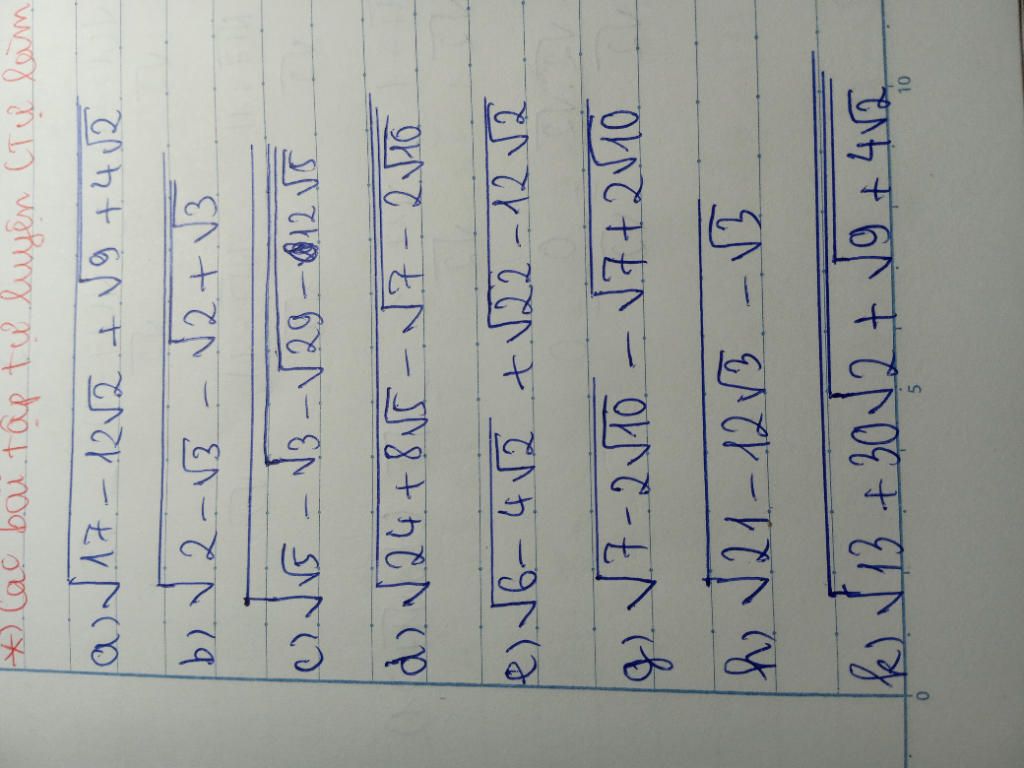 *) Các bài tập tự luyện (Tự làm
a) √(17 - 12√2 + √(9 + 4√2))
b) √(2 - √3 - √(2 + √3))
c) √(√5 - √(3 - √(29 - 12√5)))
d) √(24 + 8√5 - √(7 - 2√10))
e) √(6 - 4√2) + √(22 - 12√2)
g) √(7 - 2√10) - √(7 + 2√10)
h) √(21 - 12√3 - √3)
k) √(13 + 30√(2 + √(9 + 4√2)))
0 5 10